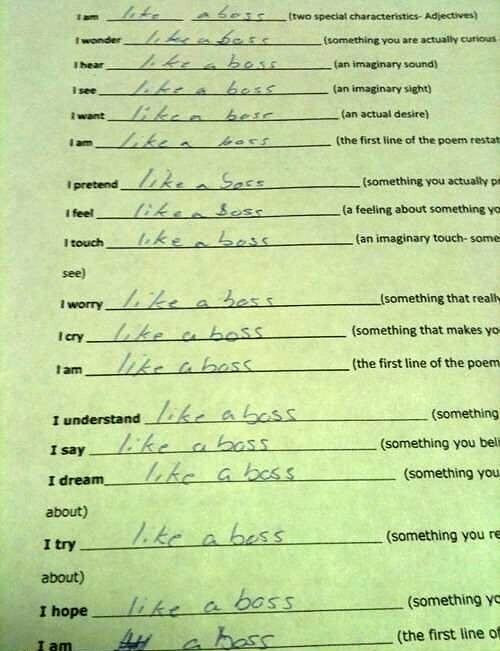 I am like a boss (two special characteristics- Adjectives)
I wonder like a boss (something you are actually curious
I hear like a boss (an imaginary sound)
I see like a boss (an imaginary sight)
I want like a boss (an actual desire)
I am like a boss (the first line of the poem restat
I pretend like a boss (something you actually pr
I feel like a Boss (a feeling about something yo
I touch like a boss (an imaginary touch- some
see)
I worry like a boss (something that really
I cry like a boss (something that makes yo
I am like a boss (the first line of the poem
I understand like a boss (something
I say like a boss (something you beli
I dream like a boss (something you
about)
I try like a boss (something you re
about)
I hope like a boss (something yo
I am a boss (the first line of